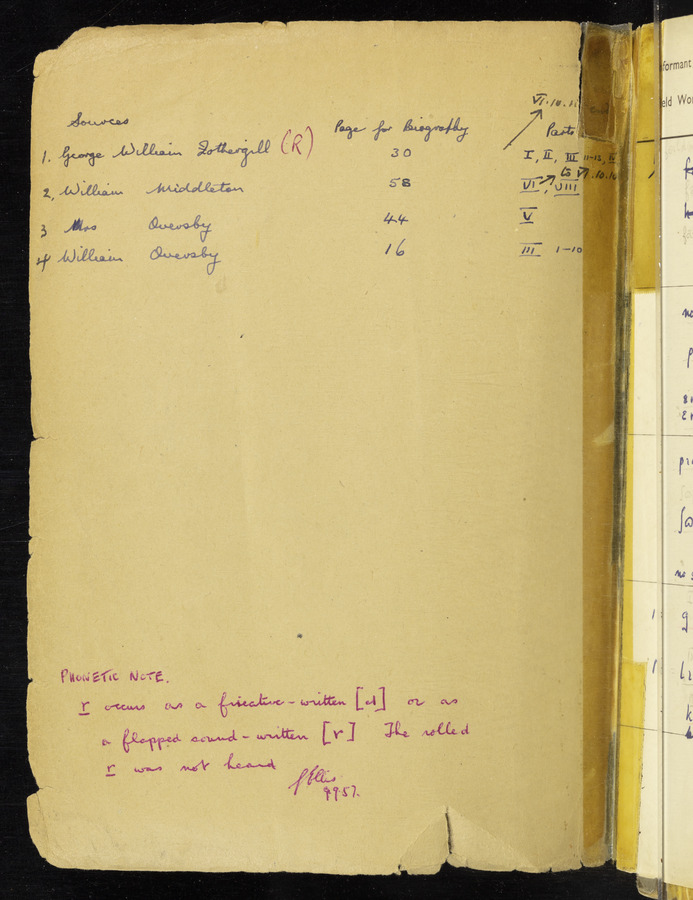 VI.10.11
Sources Page for Biography Parts
1. George William Fothergill (R) 30 I, II, III 11-13, IV
to VI.10.10
2, William Middleton 58 VI, VIII
3 Mrs Oversby 44 V
4 William Oversby 16 III 1-10
PHONETIC NOTE.
r occurs as a fricative - written [ɹ] or as
a flapped sound - written [ɾ] The rolled
r was not heard
S Ellis
9.9.57.
nformant
eld Wo